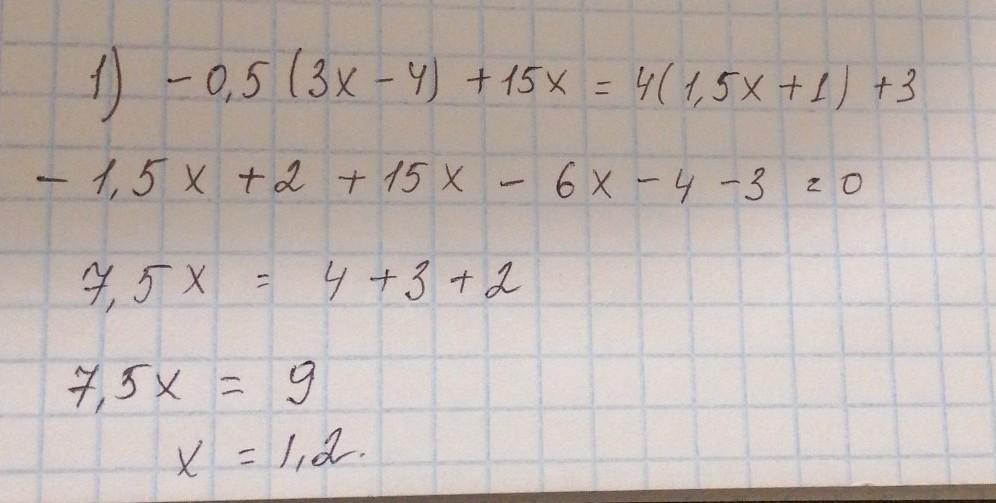 1) -0,5 (3x - 4) + 15x = 4(1,5x + 1) + 3
- 1,5x + 2 + 15x - 6x - 4 - 3 = 0
7,5x = 4 + 3 + 2
7,5x = 9
x = 1,2.